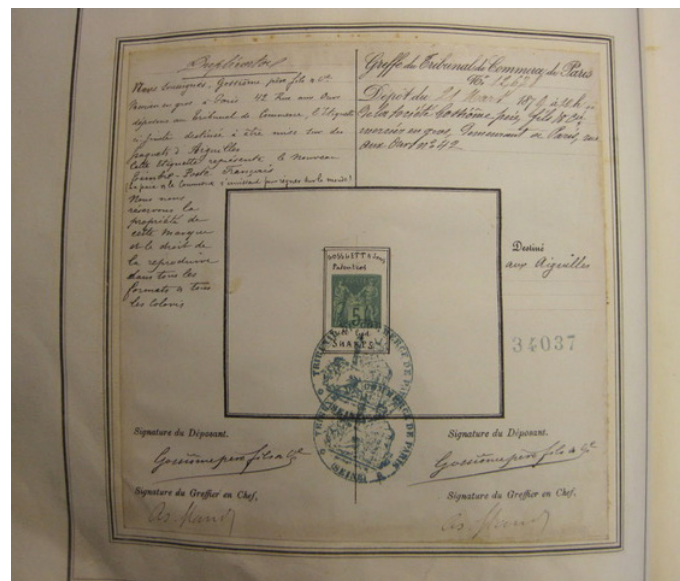 Duplicata
Nous soussignés, Gossiôme père fils & Cie
Merciers en gros à Paris 42 Rue aux Ours
déposons au Tribunal de Commerce, l'Etiquette
ci jointe destinée à être mise sur des
paquets d'Aiguilles
Cette étiquette représente le nouveau
Timbre-Poste Français
La paix & le Commerce s'unissant pour régner sur le monde!
Nous nous
réservons la
propriété de
cette marque
et le droit de
la reproduire
dans tous les
formats & tous
les coloris
Greffe du Tribunal du Commerce de Paris
No 12,678
Dépôt du 21 Mart à 10h
De la Société Gossiôme père, fils & Cie,
merciers en gros, demeurant à Paris, rue
aux Ours no 42
& Sons
Patentees
5
SHARPS
Destiné
aux Aiguilles
34037
TRIBUNAL DE COMMERCE DE PARIS
(SEINE)
TRIBUNAL DE COMMERCE DE PARIS
(SEINE)
Signature du Déposant.
Gossiôme père fils & Cie
Signature du Greffier en Chef,
Signature du Déposant.
Gossiôme père fils & Cie
Signature du Greffier en Chef,